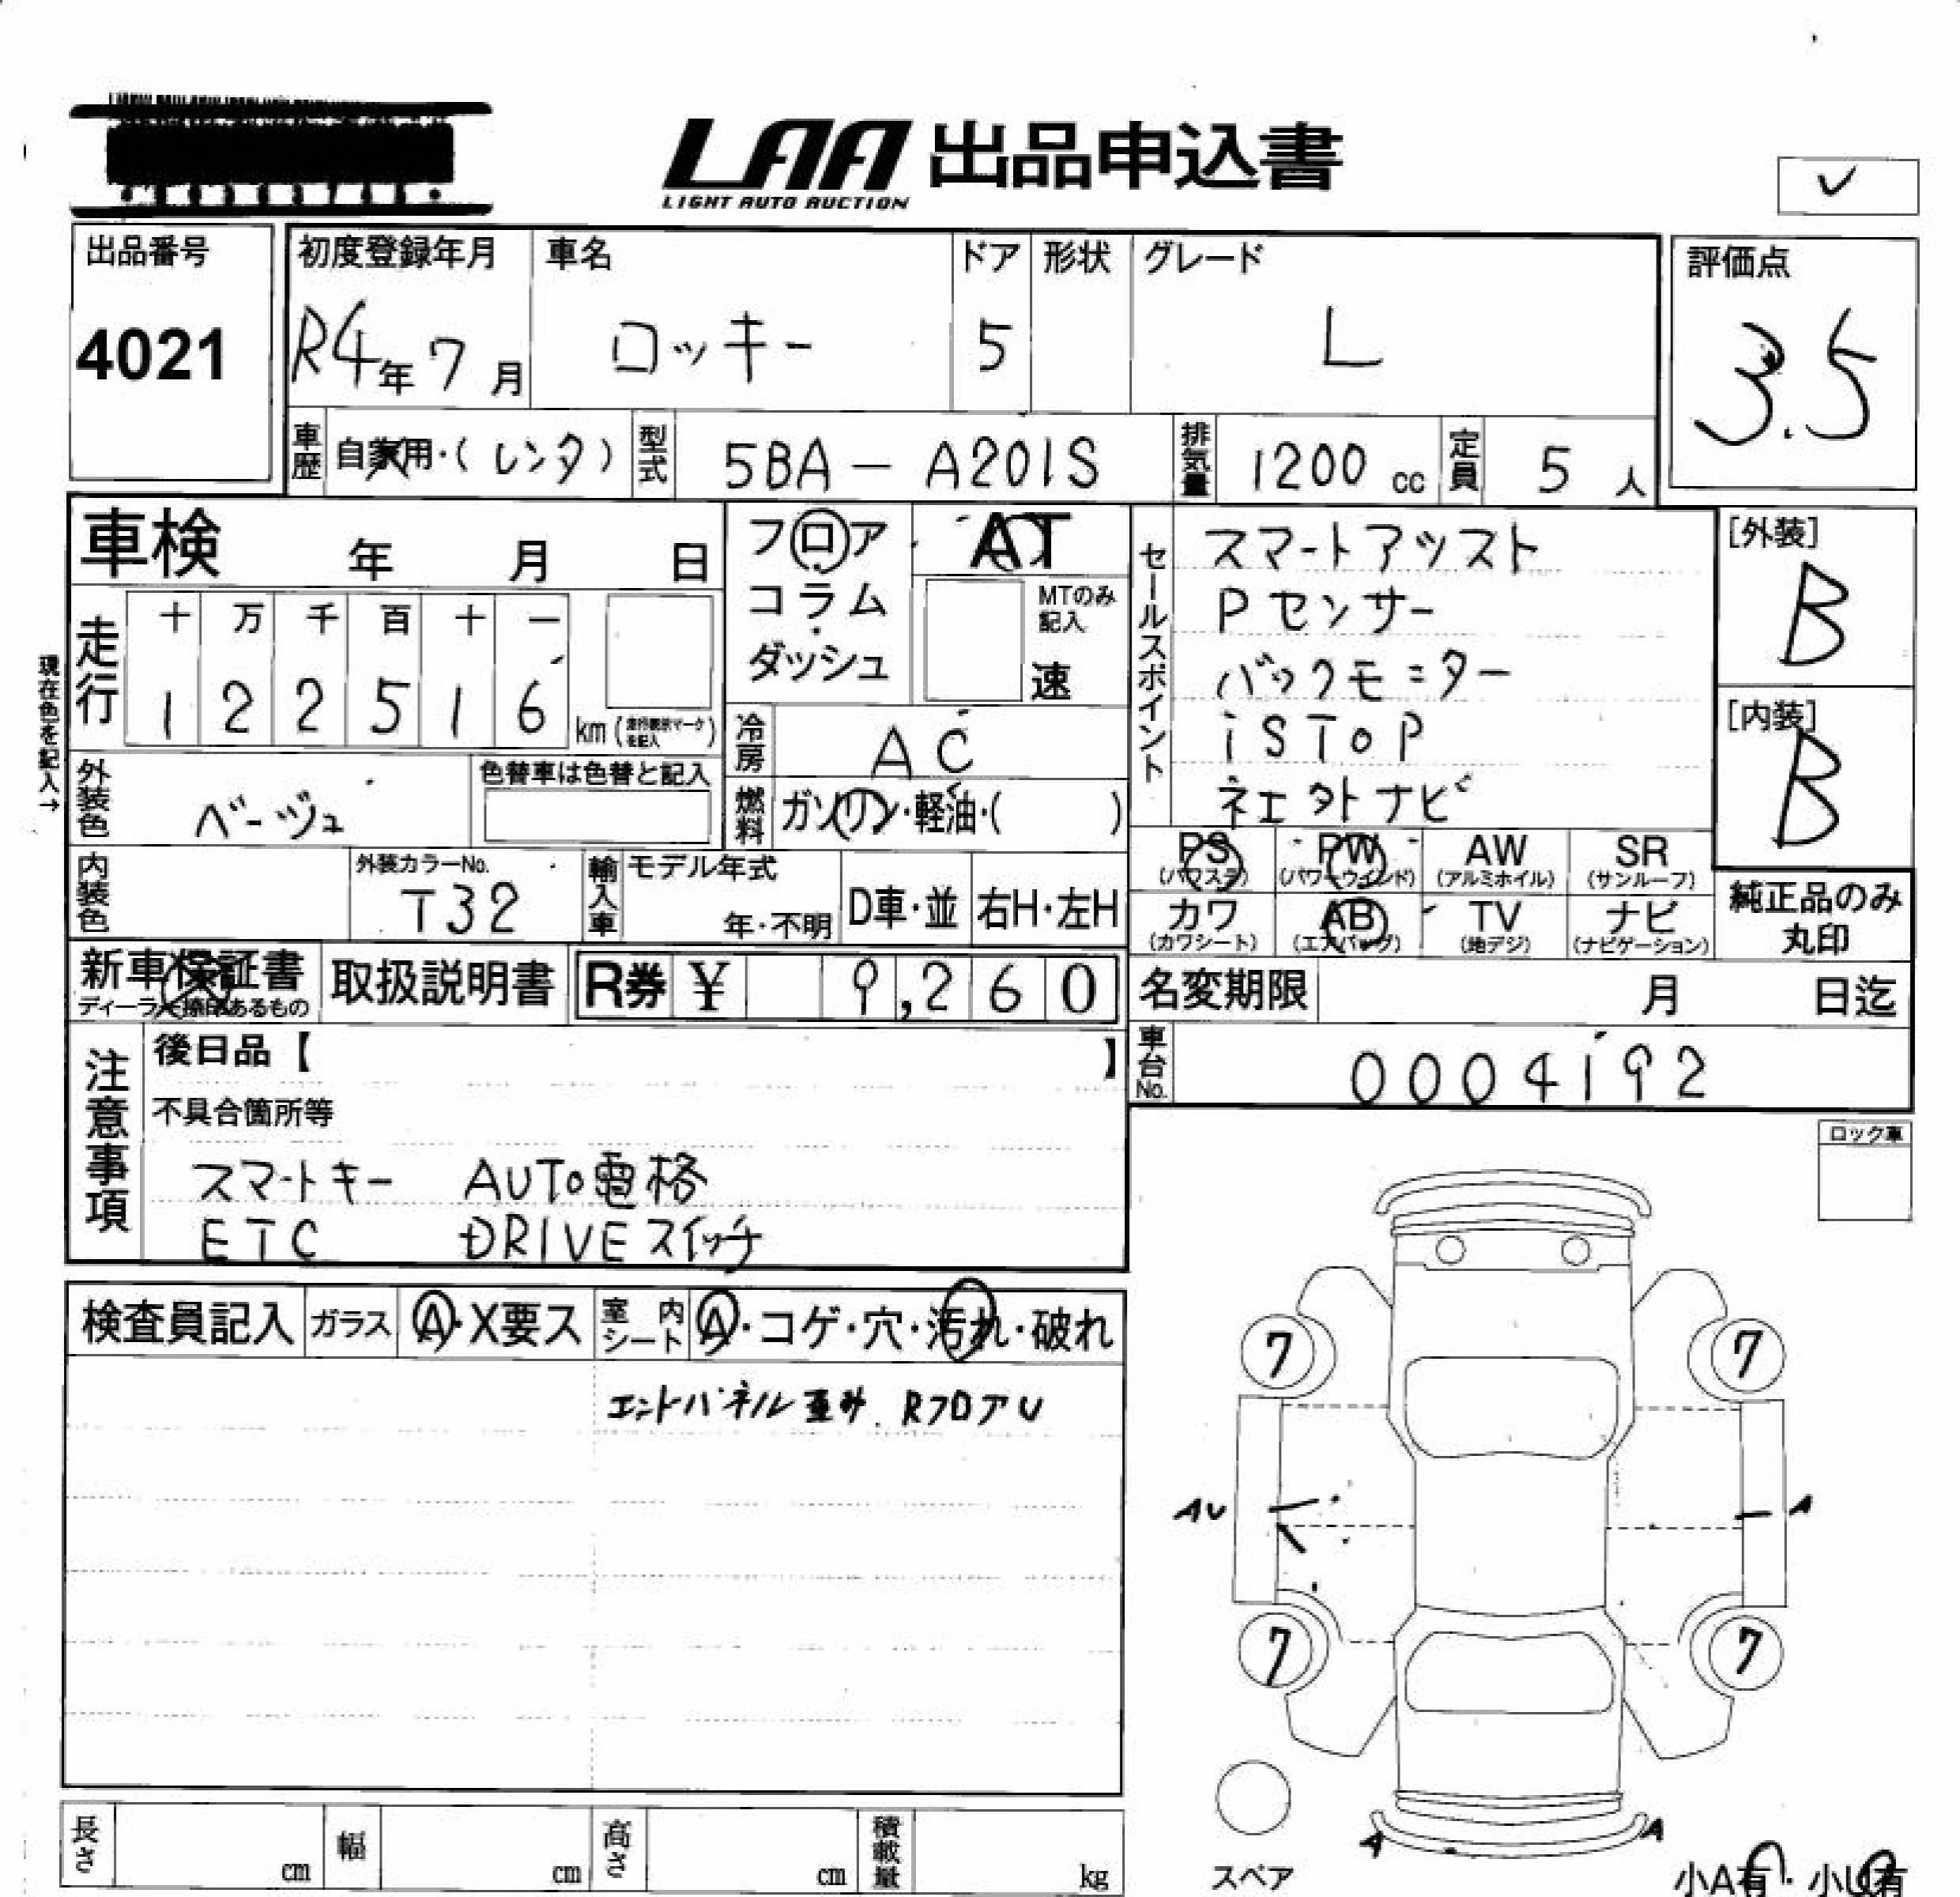 LAA 出品申込書
LIGHT AUTO AUCTION
出品番号
4021
初度登録年月
R4年7月
車名
ロッキー
ドア
5
形状
グレード
L
評価点
3.5
車歴
自家用・(レンタ)
型式
5BA-A201S
排気量
1200 cc
定員
5人
車検 年 月 日
フロア
コラム
ダッシュ
AT
MTのみ
記入
速
走行
十 万 千 百 十 一
1 2 2 5 1 6
km
現在色を記入→
冷房
AC
燃料
ガソリン・軽油・( )
外装色
ベージュ
色替車は色替と記入
内装色
外装カラーNo.
T32
輸入車
モデル年式
年・不明
D車・並
右H・左H
セールスポイント
スマートアッスト
Pセンサー
バックモニター
iSTOP
[外装]
B
[内装]
B
PS
(パワステ)
PW
(パワーウインド)
AW
(アルミホイル)
SR
(サンルーフ)
カワ
(カワシート)
AB
(エアバッグ)
TV
(地デジ)
ナビ
(ナビゲーション)
純正品のみ
丸印
新車保証書
取扱説明書
R券 ¥ 9,260
名変期限 月 日迄
車台No.
0004192
注意事項
後日品【 】
不具合箇所等
スマートキー AUTO電格
ETC DRIVEスイッチ
ロック車
検査員記入
ガラス
A・X要ス
室内シート
A・コゲ・穴・汚れ・破れ
エンドパネル歪み RフロアU
7
7
AU
A
7
7
A
A
スペア
小A有・小U有
長さ cm
幅 cm
高さ cm
積載量 kg